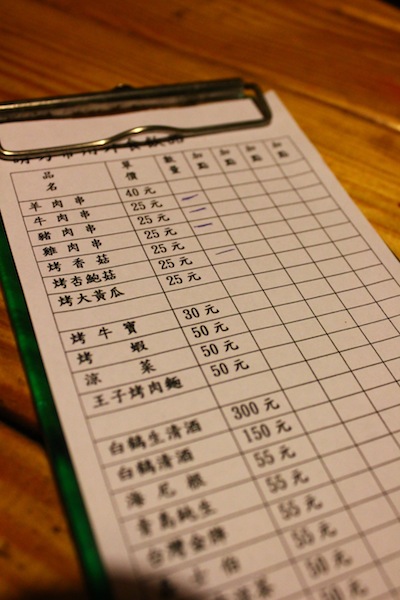 品名 單價 數量 加點 加點 加點 加點
羊肉串 40元
牛肉串 25元
豬肉串 25元
雞肉串 25元
烤香菇 25元
烤杏鮑菇 25元
烤大黃瓜 25元
烤牛寶 30元
烤蝦 50元
涼菜 50元
王子烤肉麵 50元
白鶴生清酒 300元
白鶴清酒 150元
海尼根 55元
青島純生 55元
台灣金牌 55元
士伯 55元
50元
50